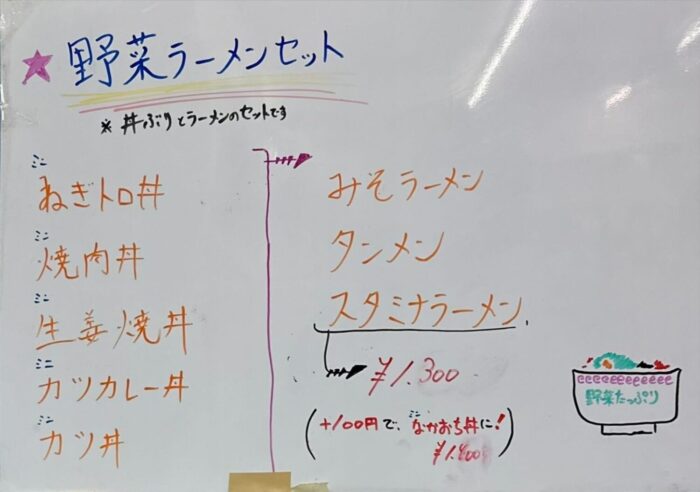 ★野菜ラーメンセット
※ 丼ぶりとラーメンのセットです
ミニ
ねぎトロ丼
ミニ
焼肉丼
ミニ
生姜焼丼
ミニ
カツカレー丼
ミニ
カツ丼
みそラーメン
タンメン
スタミナラーメン
¥1.300
(+100円で、ミニなかおち丼に!
¥1.400)
野菜たっぷり